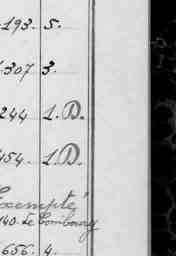 193. 5.
307 3
244 1. D.
454. 1. D.
Exempté
140. de Combourg
656. 4.